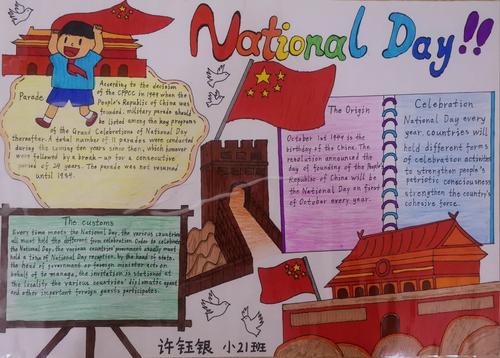 National Day!!
Parade
According to the decision
of the CPPCC in 1949 when the
People's Republic of China was
founded, military parade should
be listed among the key programs
of the Grand Celebrations of National Day
thereafter. A total number of 11 parades were conducted
during the coming ten years since then, which however
were followed by a break-up for a consecutive
period of 24 years. The parade was not resumed
until 1984.
The Origin
October 1st 1949 is the
birthday of the China. The
resolution announced the
day of founding of the People's
Republic of China will be
the National Day on first
of October every year.
Celebration
National Day every
year, countries will
hold different forms
of celebration activities
to strengthen people's
patriotic consciousness
strengthen the country's
cohesive force.
The customs
Every time meets the National Day, the various countries
all must hold the different form celebration. Order to celebrate
the National Day, the various countries' government usually must
hold a time of National Day reception, by the head of state.
the head of government or foreign minister acts on
behalf of to manage, the invitation is stationed at
the locality the various countries' diplomatic agent
and other important foreign guests participates.
许钰银 小21班